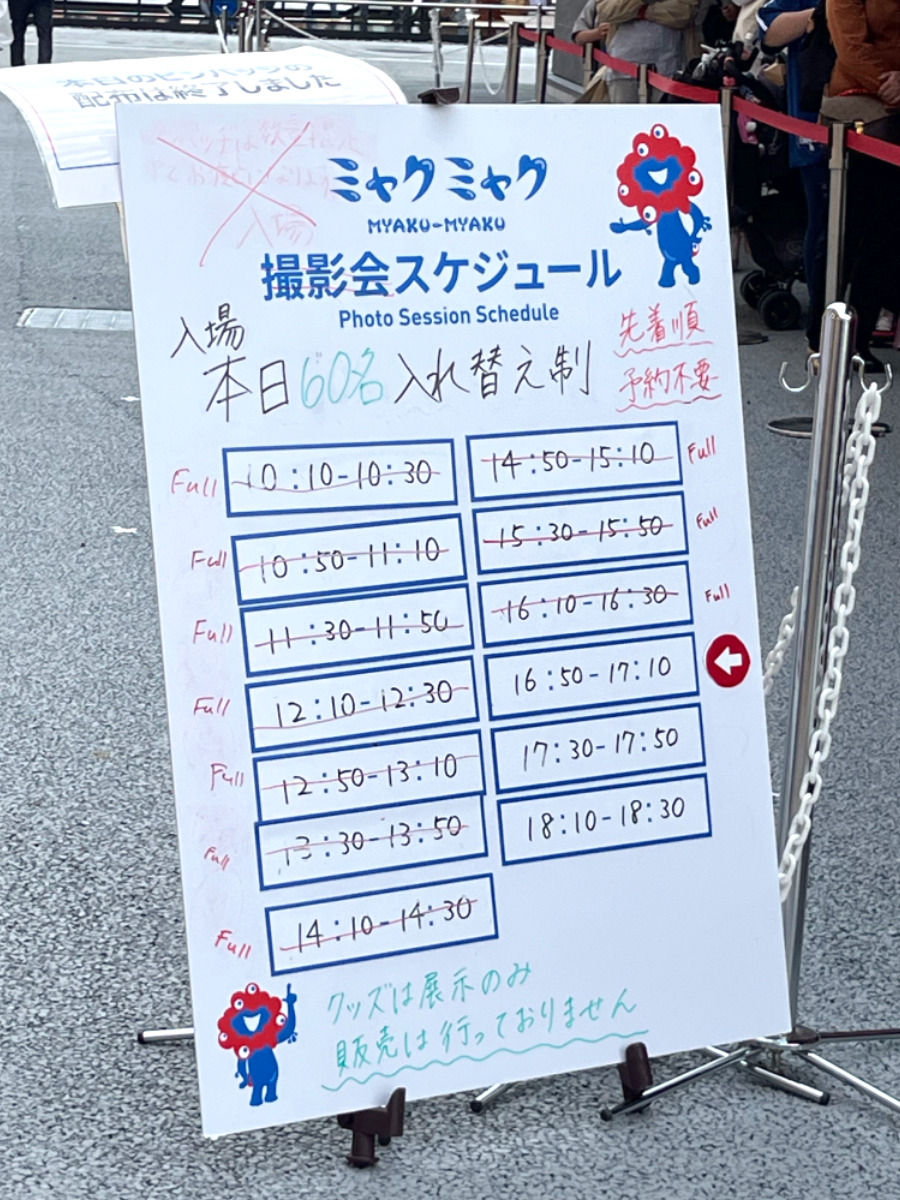 本日のピンバッジの
配布は終了しました
入場
ミャクミャク
MYAKU-MYAKU
撮影会スケジュール
Photo Session Schedule
入場
本日60名入れ替え制
先着順
予約不要
Full 10:10-10:30
Full 10:50-11:10
Full 11:30-11:50
Full 12:10-12:30
Full 12:50-13:10
Full 13:30-13:50
Full 14:10-14:30
14:50-15:10 Full
15:30-15:50 Full
16:10-16:30 Full
16:50-17:10
17:30-17:50
18:10-18:30
グッズは展示のみ
販売は行っておりません